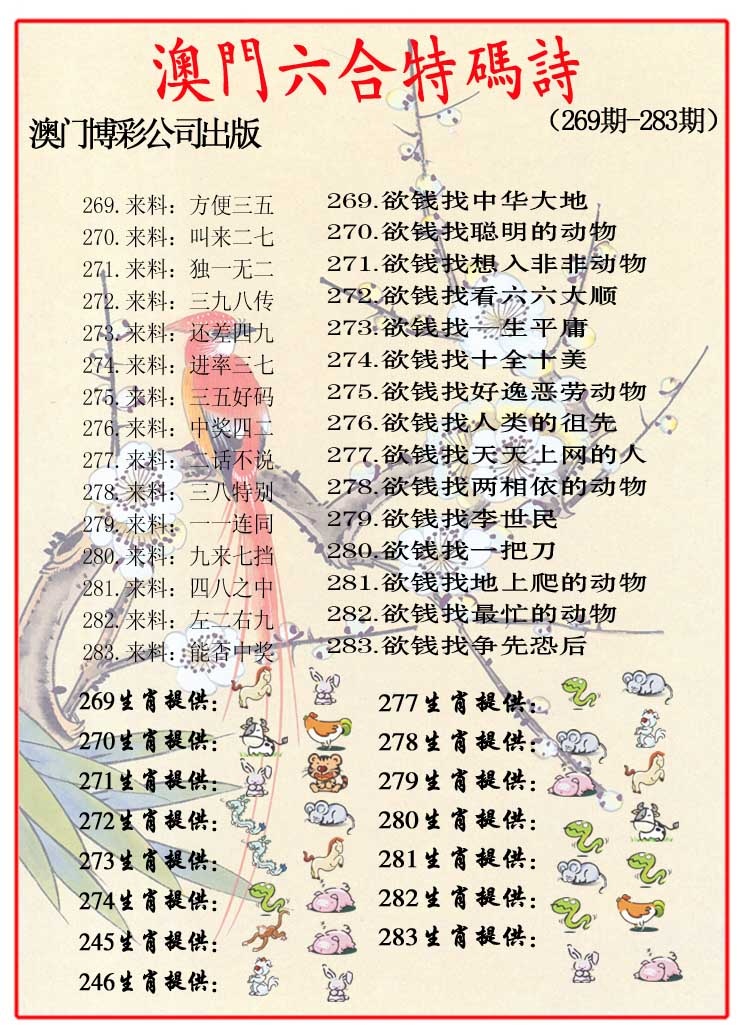 澳門六合特碼詩
澳门博彩公司出版
（269期-283期）
269.来料：方便三五
270.来料：叫来二七
271.来料：独一无二
272.来料：三九八传
273.来料：还差四九
274.来料：进率三七
275.来料：三五好码
276.来料：中奖四二
277.来料：二话不说
278.来料：三八特别
279.来料：一一连同
280.来料：九来七挡
281.来料：四八之中
282.来料：左二右九
283.来料：能否中奖
269.欲钱找中华大地
270.欲钱找聪明的动物
271.欲钱找想入非非动物
272.欲钱找看六六大顺
273.欲钱找一生平庸
274.欲钱找十全十美
275.欲钱找好逸恶劳动物
276.欲钱找人类的祖先
277.欲钱找天天上网的人
278.欲钱找两相依的动物
279.欲钱找李世民
280.欲钱找一把刀
281.欲钱找地上爬的动物
282.欲钱找最忙的动物
283.欲钱找争先恐后
269生肖提供：
270生肖提供：
271生肖提供：
272生肖提供：
273生肖提供：
274生肖提供：
245生肖提供：
246生肖提供：
277生肖提供：
278生肖提供：
279生肖提供：
280生肖提供：
281生肖提供：
282生肖提供：
283生肖提供：